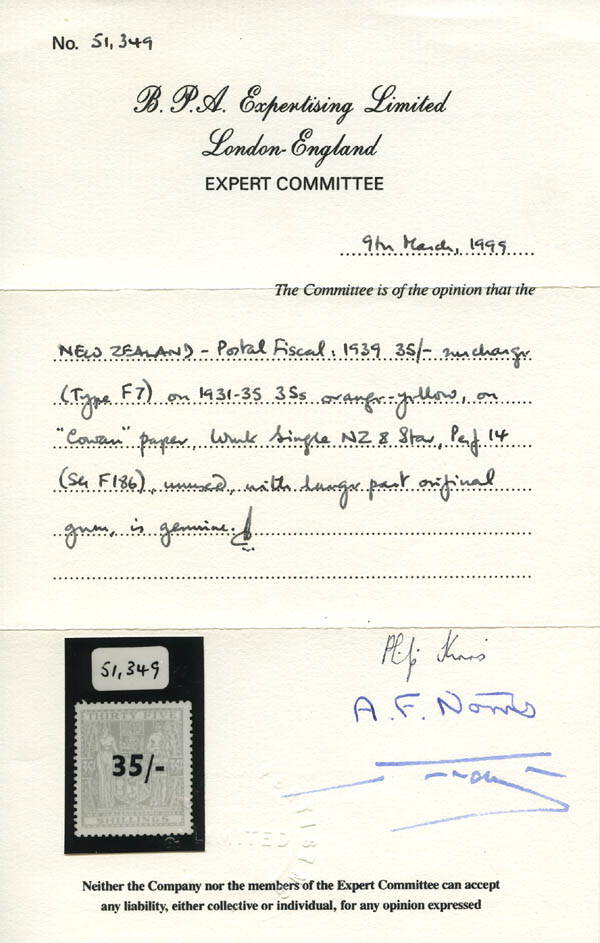 No. 51,349
B.P.A. Expertising Limited
London-England
EXPERT COMMITTEE
9th March, 1999
The Committee is of the opinion that the
NEW ZEALAND - Postal Fiscal: 1939 35/- surcharge
(Type F7) on 1931-35 35s orange-yellow, on
"Cowan" paper, Wmk Single NZ & Star, Perf 14
(SG F186), unused, with large part original
gum, is genuine.
51,349
THIRTY FIVE
35/-
SHILLINGS
A. F. Norris
LIMITED
Neither the Company nor the members of the Expert Committee can accept
any liability, either collective or individual, for any opinion expressed